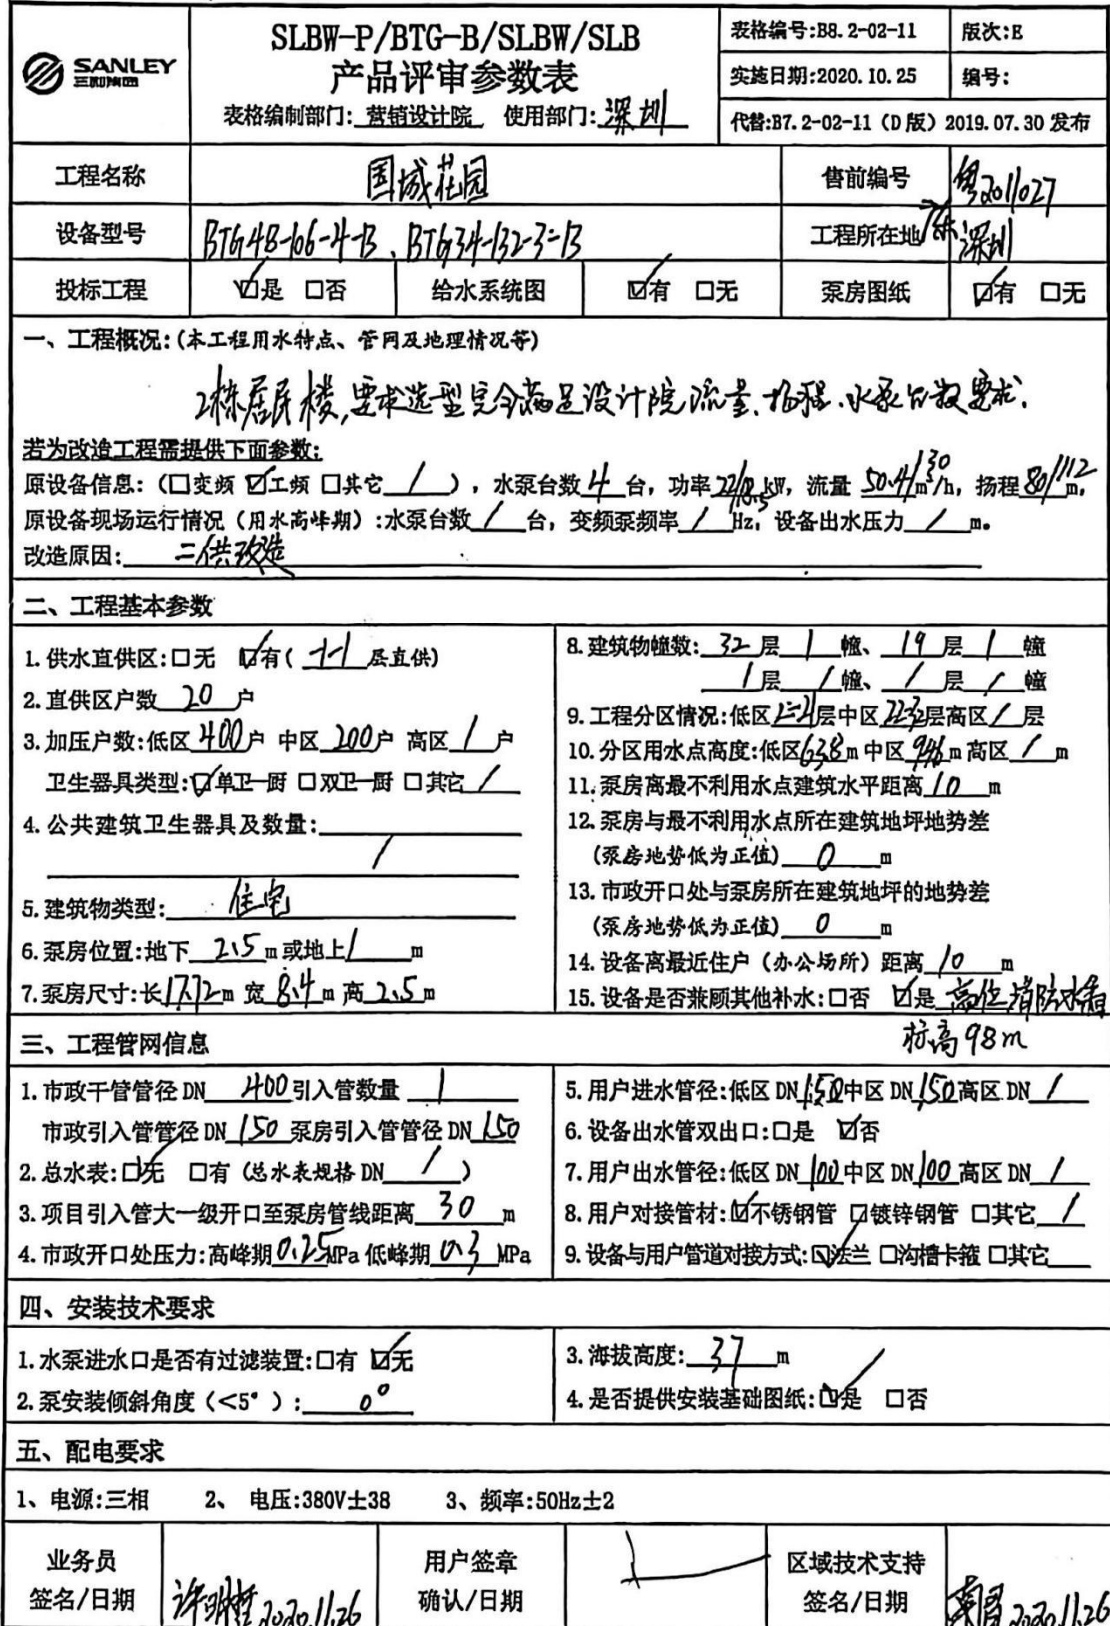 SANLEY
三利集团
SLBW-P/BTG-B/SLBW/SLB
产品评审参数表
表格编制部门:营销设计院 使用部门:深圳
表格编号:B8.2-02-11 版次:E
实施日期:2020.10.25 编号:
代替:B7.2-02-11（D版）2019.07.30 发布
工程名称 国城花园 售前编号 粤2011027
设备型号 BTG48-106-4-B、BTG34-132-3-B 工程所在地 深圳
投标工程 ☑是 □否 给水系统图 ☑有 □无 泵房图纸 ☑有 □无
一、工程概况:(本工程用水特点、管网及地理情况等)
2栋居民楼,要求选型完全满足设计院流量、扬程、水泵台数要求.
若为改造工程需提供下面参数:
原设备信息:（□变频 ☑工频 □其它 / ）,水泵台数 4 台,功率 22/18.5 kW,流量 50.4/30 m³/h,扬程 80/112 m,
原设备现场运行情况（用水高峰期）:水泵台数 / 台,变频泵频率 / Hz,设备出水压力 / m。
改造原因: 二供改造
二、工程基本参数
1.供水直供区:□无 ☑有( -1-1 层直供)
2.直供区户数 20 户
3.加压户数:低区 400 户 中区 200 户 高区 / 户
卫生器具类型:☑单卫一厨 □双卫一厨 □其它 /
4.公共建筑卫生器具及数量:
/
5.建筑物类型: 住宅
6.泵房位置:地下 2.5 m或地上 / m
7.泵房尺寸:长 17.72 m 宽 8.4 m 高 2.5 m
8.建筑物幢数: 32 层 1 幢、 19 层 1 幢
/ 层 / 幢、 / 层 / 幢
9.工程分区情况:低区 2-21 层中区 22-32 层高区 / 层
10.分区用水点高度:低区 63.8 m 中区 94.6 m 高区 / m
11.泵房离最不利用水点建筑水平距离 10 m
12.泵房与最不利用水点所在建筑地坪地势差
(泵房地势低为正值) 0 m
13.市政开口处与泵房所在建筑地坪的地势差
(泵房地势低为正值) 0 m
14.设备离最近住户（办公场所）距离 10 m
15.设备是否兼顾其他补水:□否 ☑是 高位消防水箱
标高98m
三、工程管网信息
1.市政干管管径 DN 400 引入管数量 1
市政引入管管径 DN 150 泵房引入管管径 DN 150
2.总水表:☑无 □有 (总水表规格 DN / )
3.项目引入管大一级开口至泵房管线距离 30 m
4.市政开口处压力:高峰期 0.25 MPa 低峰期 0.3 MPa
5.用户进水管径:低区 DN 150 中区 DN 150 高区 DN /
6.设备出水管双出口:□是 ☑否
7.用户出水管径:低区 DN 100 中区 DN 100 高区 DN /
8.用户对接管材:☑不锈钢管 □镀锌钢管 □其它 /
9.设备与用户管道对接方式:☑法兰 □沟槽卡箍 □其它
四、安装技术要求
1.水泵进水口是否有过滤装置:□有 ☑无
2.泵安装倾斜角度（<5°）: 0°
3.海拔高度: 37 m
4.是否提供安装基础图纸:☑是 □否
五、配电要求
1、电源:三相 2、 电压:380V±38 3、频率:50Hz±2
业务员
签名/日期 2020.11.26
用户签章
确认/日期
区域技术支持
签名/日期 2020.11.26